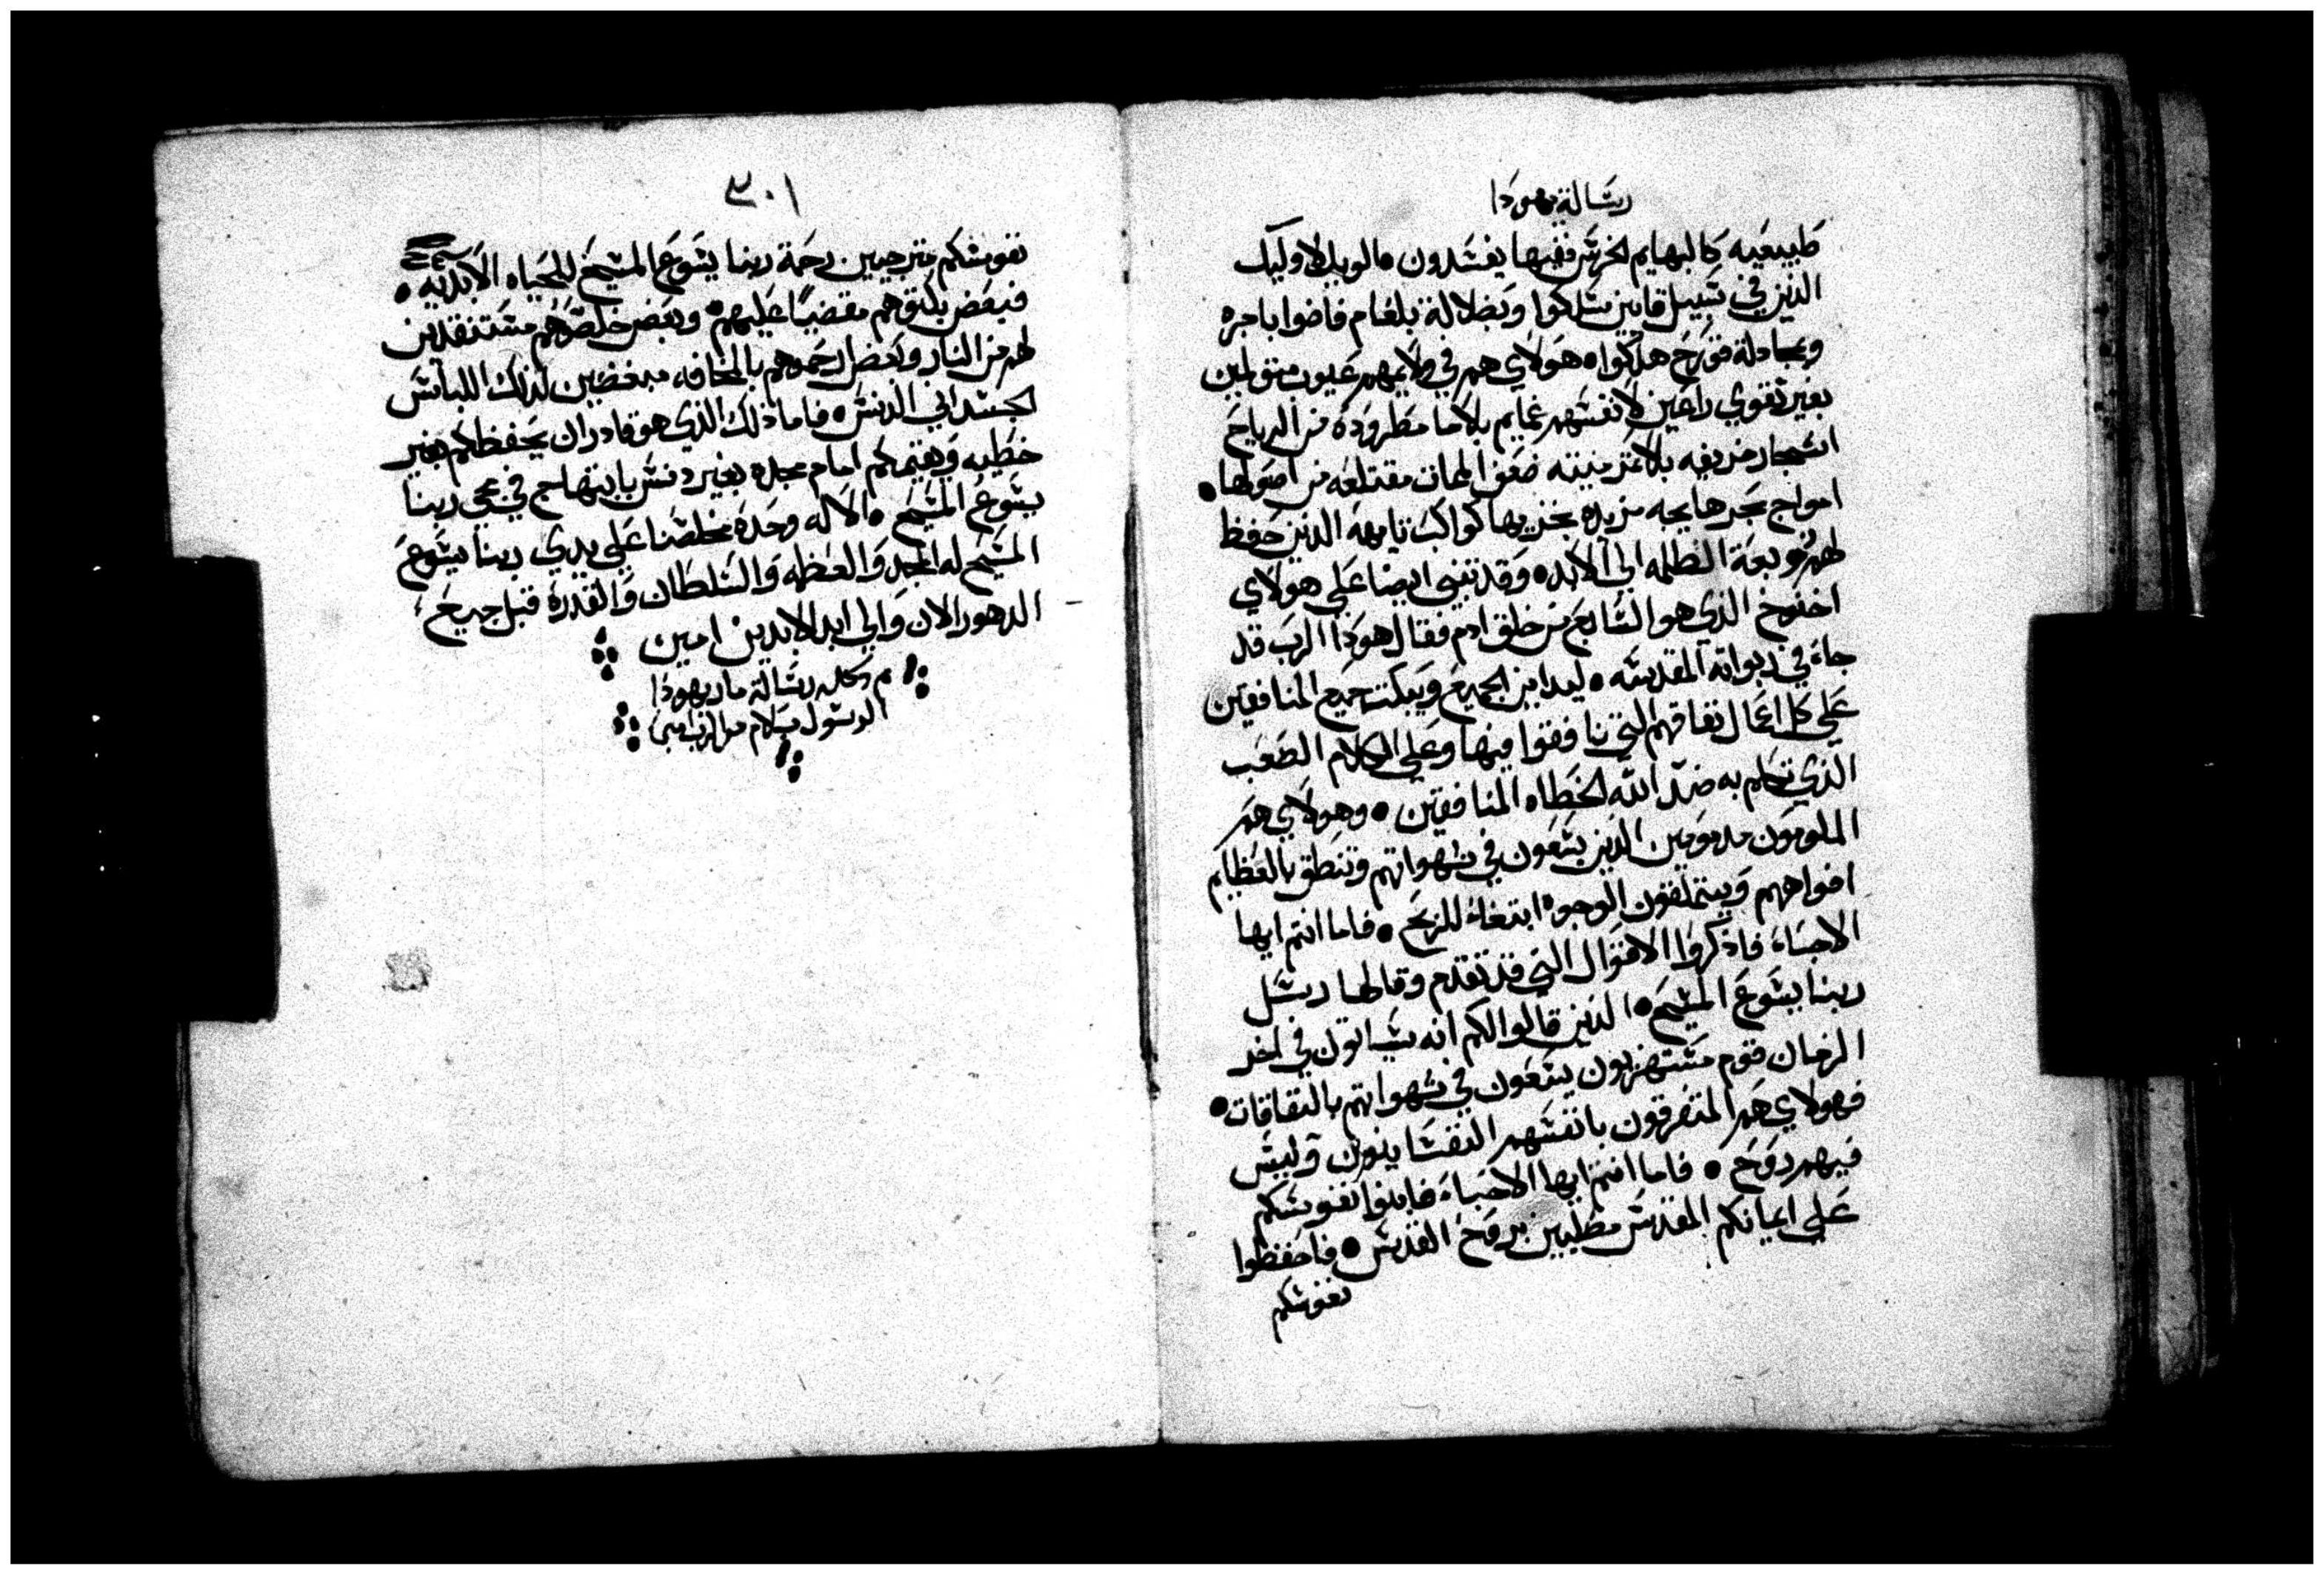 رسالة يهودا
طبيعيه كالبهايم الخرس ففيها يفسدون • الويل لاوليك
الذين في سبيل قايين سلكوا وبضلالة بلعام فاضوا باجره
وبمجادلة قورح هلكوا • هولاي هم في ولايمهم عيوب متولمين
بغير تقوي راعين لانفسهم غمايم بلا ما مطرودة من الرياح
اشجار خريفيه بلا ثمر ميته ضعف المات مقتلعه من اصولها •
امواج بحر هايجه مزبده بخزيها كواكب تايهه الذين حفظ
لهم زوبعة الظلمه الي الابد • وقد تنبي ايضا علي هولاي
اخنوخ الذي هو السابع من خلق ادم فقال هوذا الرب قد
جاء في ربواته المقدسه • ليداين الجميع ويبكت جميع المنافقين
علي كل اعمال نفاقهم التي نافقوا فيها وعلي الكلام الصعب
الذي تكلم به ضد الله الخطاه المنافقين • وهولاي هم
الملومون مدمومين الذين يسعون في شهواتهم وتنطق بالعظايم
افواههم ويتملقون الوجوه ابتغاء للربح • فاما انتم ايها
الاحباء فاذكروا الاقوال التي قد تقدم وقالها رسل
ربنا يسوع المسيح • الذين قالوا لكم انه سياتون في اخر
الزمان قوم مستهزيون يسعون في شهواتهم بالنفاقات •
فهولاي هم المتفرقون بانفسهم النفسانيون وليس
فيهم روح • فاما انتم ايها الاحباء فابنوا نفوسكم
علي ايمانكم المقدس مصليين بروح القدس • فاحفظوا
نفوسكم
٣٠١
نفوسكم مترجيين رحمة ربنا يسوع المسيح للحياه الابديه •
فبعض بكتوهم مقضيا عليهم • وبعض خلصوهم مستنقدين
لهم من النار وبعض ارحموهم بالمخافه مبغضين لذلك اللباس
الجسداني الدنس • فاما ذلك الذي هو قادر ان يحفظكم بغير
خطيه ويقيمكم امام مجده بغير دنس بابتهاج في مجي ربنا
يسوع المسيح • الاله وحده مخلصنا علي يدي ربنا يسوع
المسيح له المجد والعظمه والسلطان والقدرة قبل جميع
الدهور الان والي ابد الابدين امين
تم وكمل رسالة مار يهودا
الرسول بسلام من الرب امين